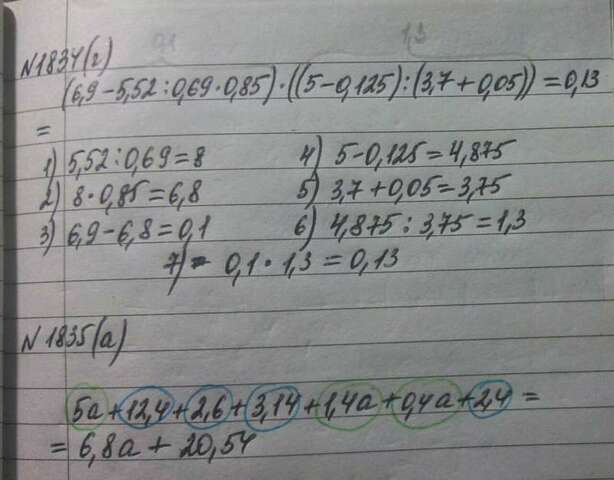 N1834(г)
(6,9-5,52:0,69·0,85)·((5-0,125):(3,7+0,05))=0,13
=
1) 5,52:0,69=8
2) 8·0,85=6,8
3) 6,9-6,8=0,1
4) 5-0,125=4,875
5) 3,7+0,05=3,75
6) 4,875:3,75=1,3
7) 0,1·1,3=0,13
N1835(а)
5a+12,4+2,6+3,14+1,4a+0,4a+2,4=
=6,8a+20,54